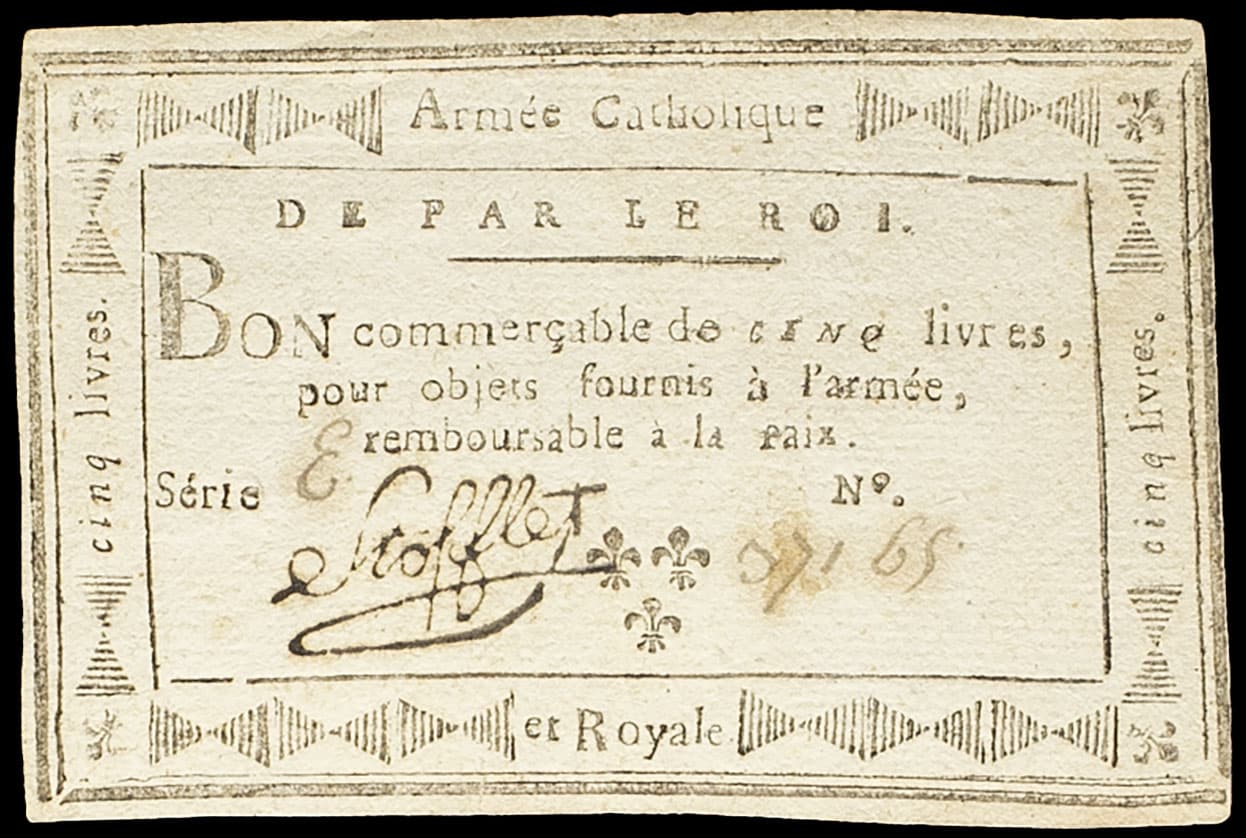 Armée Catholique
DE PAR LE ROI.
BON commerçable de CINQ livres,
pour objets fournis à l'armée,
remboursable à la paix.
Série E Nº. 37165
Stofflet
et Royale
cinq livres.
cinq livres.